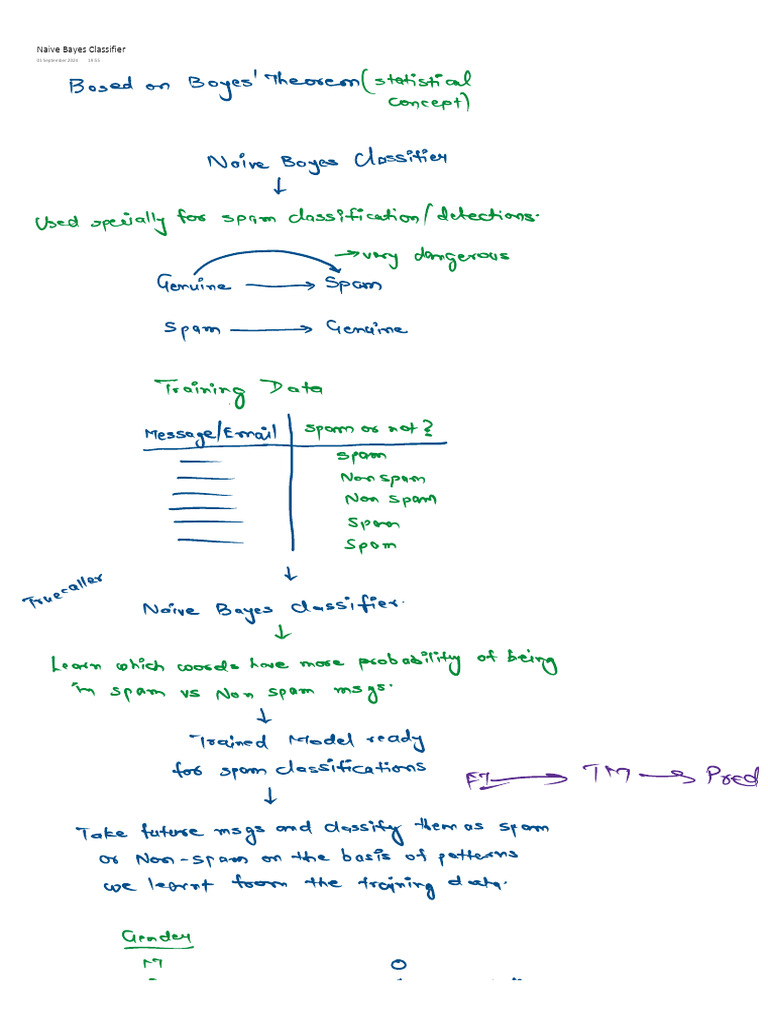 Naive Bayes Classifier
01 September 2024 19:53
Based on Bayes' Theorem (statistical
concept)
Naive Bayes Classifier
Used specially for spam classification/detections.
→ very dangerous
Genuine → Spam
Spam → Genuine
Training Data
Message/Email | Spam or not?
Spam
Non spam
Non spam
Spam
Spam
Truecaller
Naive Bayes Classifier.
Learn which words have more probability of being
in spam vs Non spam msgs.
Trained Model ready
for spam classifications
FM → TM → Pred
Take future msgs and classify them as spam
or Non-spam on the basis of patterns
we learnt from the training data.
Gender
M 0